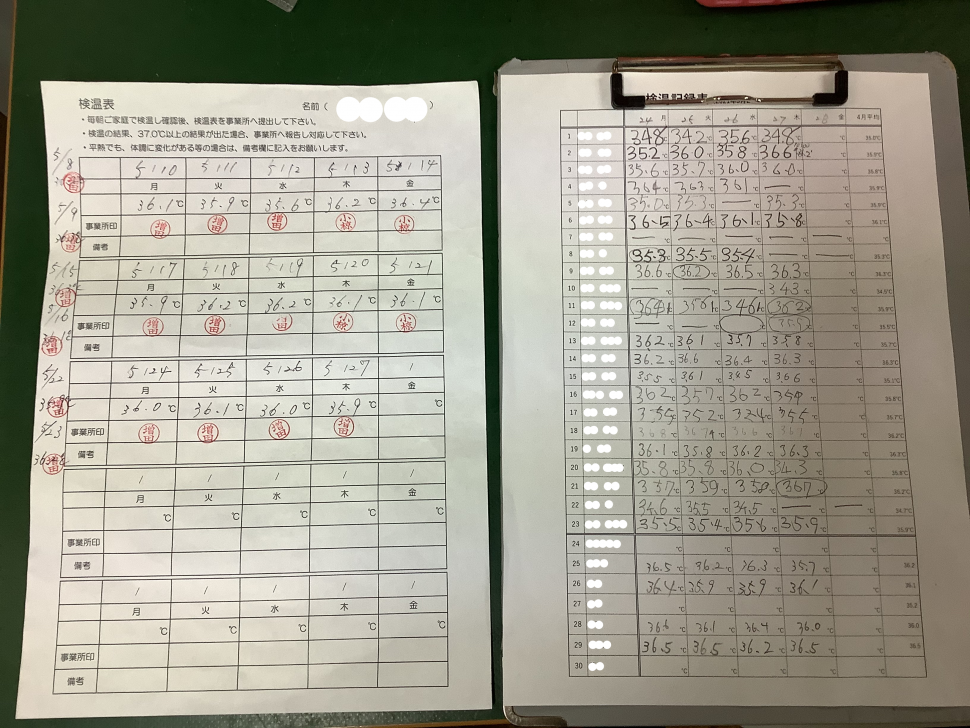 検温表
名前（　　　）
・毎朝ご家庭で検温し確認後、検温表を事業所へ提出して下さい。
・検温の結果、37.0℃以上の結果が出た場合、事業所へ報告し対応して下さい。
・平熱でも、体調に変化がある等の場合は、備考欄に記入をお願いします。
5/10 5/11 5/12 5/13 5/14
月 火 水 木 金
36.1℃ 35.9℃ 35.6℃ 36.2℃ 36.4℃
事業所印 増田 増田 増田 小榛 小榛
備考
5/17 5/18 5/19 5/20 5/21
月 火 水 木 金
35.9℃ 36.2℃ 36.2℃ 36.1℃ 36.1℃
事業所印 増田 増田 増田
備考
5/24 5/25 5/26 5/27 /
月 火 水 木 金
36.0℃ 36.1℃ 36.0℃ 35.9℃ ℃
事業所印 増田 増田 増田 増田
備考
/ / / / /
月 火 水 木 金
℃ ℃ ℃ ℃ ℃
事業所印
備考
/ / / / /
月 火 水 木 金
℃ ℃ ℃ ℃ ℃
事業所印
備考
5/8
5/9
5/15
5/16
5/22
5/23
検温記録表
24 月 25 火 26 水 27 木 28 金 4月平均
1 34.8℃ 34.2℃ 35.6℃ 34.8℃ ℃ 35.0℃
2 35.2℃ 36.0℃ 35.8℃ 36.6 ℃
3 35.6℃ 35.7℃ 36.0℃ 36.0℃ ℃ 35.8℃
4 36.4℃ 36.3℃ 36.1℃ — ℃ 35.9℃
5 35.0℃ 35.3℃ — 35.3℃ ℃
6 36.5℃ 36.4℃ 36.1℃ 35.8℃ ℃ 36.1℃
7 — — — — —
8 35.3℃ 35.5℃ 35.4℃ — — 35.3℃
9 36.6℃ 36.2℃ 36.5℃ 36.3℃ ℃
10 — — — 34.3℃ ℃
11 36.4℃ 34.6℃ 36.2℃ ℃ 35.9℃
12 — — ℃ ℃
13 36.2℃ 36.1℃ 35.7℃ 35.8℃ ℃ 35.7℃
14 36.2℃ 36.6℃ 36.4℃ 36.3℃ ℃
15 35.5℃ 36.1℃ 36.6℃ ℃
16 36.2℃ 35.7℃ 36.2℃ ℃
17 35.5℃ 35.2℃ 35.5℃ ℃
18 ℃ 36.2℃
19 36.1℃ 35.8℃ 36.2℃ 36.3℃ ℃
20 35.8℃ 35.8℃ 36.0℃ 34.3℃ ℃
21 35.7℃ 35.9℃ 36.7℃ ℃
22 34.6℃ 35.5℃ 34.5℃ — —
23 35.5℃ 35.4℃ 35.6℃ 35.9℃ ℃
24 ℃ ℃ ℃ ℃ ℃
25 36.5℃ 36.2℃ 36.3℃ 35.7℃ ℃ 36.2
26 36.4℃ 35.9℃ 35.9℃ 36.1℃ ℃ 36.1
27 ℃ ℃ ℃ ℃ ℃
28 36.6℃ 36.1℃ 36.4℃ 36.0℃ ℃ 36.0
29 36.5℃ 36.5℃ 36.2℃ 36.5℃ ℃
30 ℃ ℃ ℃ ℃ ℃